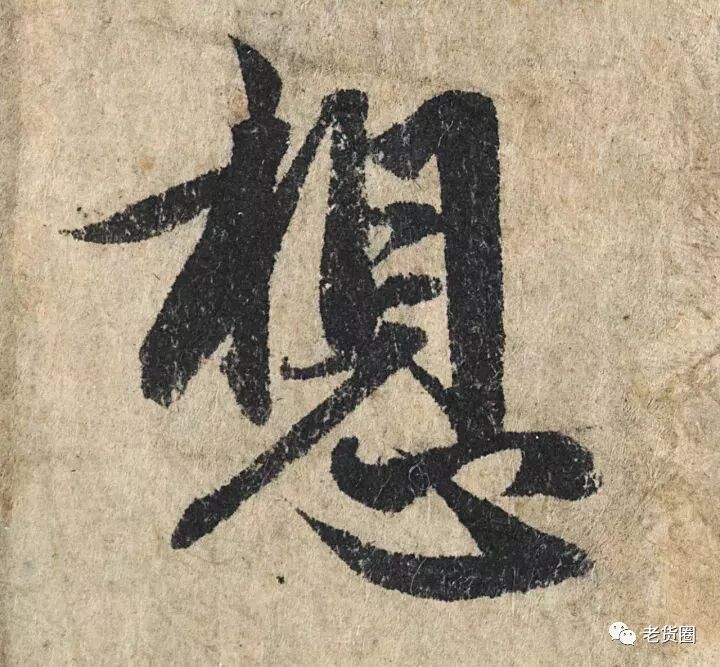 想
老货圈